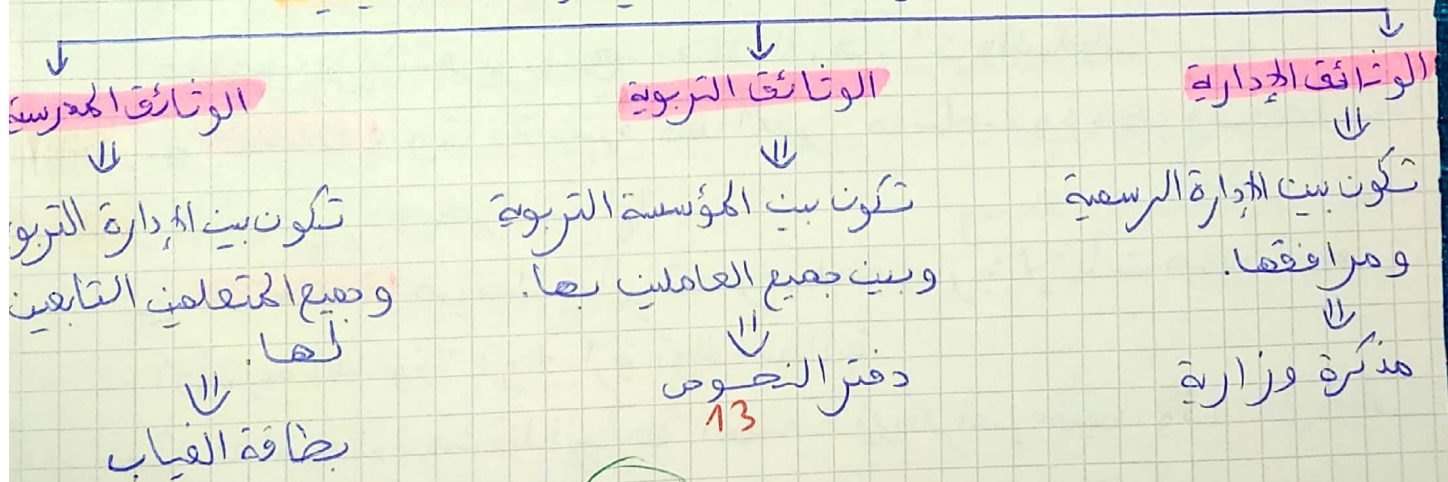 الوثائق الإدارية
تكون بين الإدارة الرسمية
ومرافقها.
مذكرة وزارية
الوثائق التربوية
تكون بين المؤسسة التربوية
وبين جميع العاملين بها.
دفتر النصوص
13
الوثائق المدرسية
تكون بين الإدارة التربو
وجميع المتعلمين التابعين
لها.
بطاقة الغياب